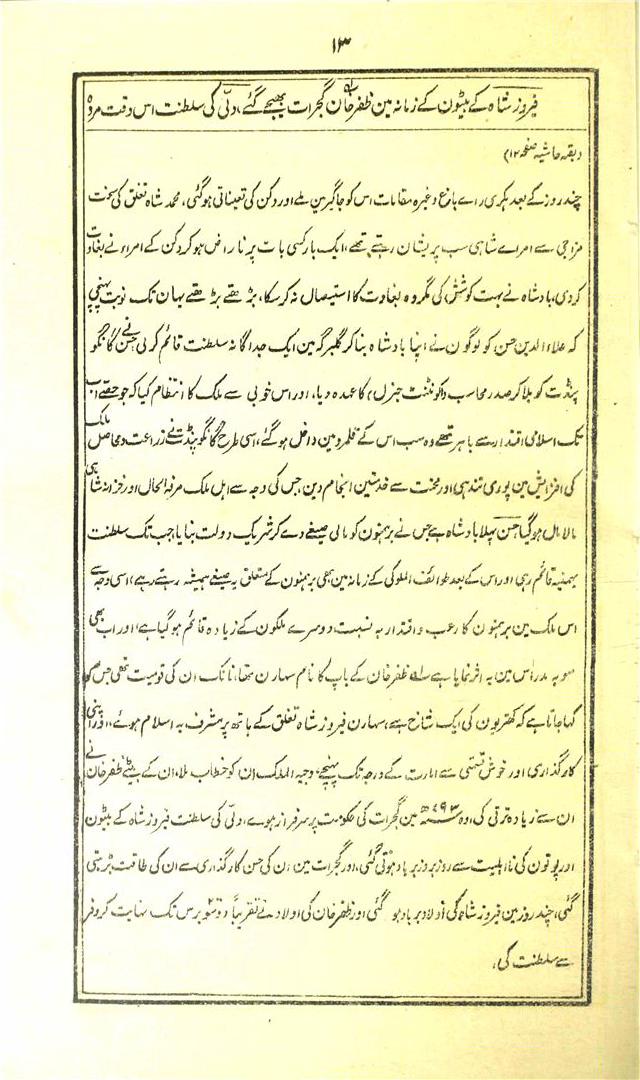 ۱۳
فیروز شاہ کے بیٹون کے زمانہ مین ظفر خان لہ گجرات بھیجے گئے، دلّی کی سلطنت اس وقت مردہ
(بقیہ حاشیہ صفحہ ۱۲)
چند روز کے بعد ہکری راے باغ وغیرہ مقامات اس کو جاگیر مین ملے اور دکن کی تعیناتی ہوگئی، محمد شاہ تغلق کی سخت
مزاجی سے امراے شاہی سب پریشان رہتے تھے، ایک بار کسی بات پر ناراض ہو کر دکن کے امراء نے بغاوت
کر دی، بادشاہ نے بہت کوشش کی مگر وہ بغاوت کا استیصال نہ کر سکا، بڑھتے بڑھتے یہان تک نوبت پہنچی
کہ علاء الدین حسن کو لوگون نے اپنا بادشاہ بنا کر گلبرگہ مین ایک جداگانہ سلطنت قائم کر لی، حسن نے گانگو
پنڈت کو بلا کر صدر محاسب (اکونٹنٹ جنرل) کا عہدہ دیا، اور اس خوبی سے ملک کا انتظام کیا کہ جو حصے اب
تک اسلامی اقتدار سے باہر تھے وہ سب اس کے قلمرو مین داخل ہو گئے، اسی طرح گانگو پنڈت نے زراعت و محاصل ملک
کی افزایش مین پوری تندہی اور محنت سے خدمتین انجام دین، جس کی وجہ سے اہل ملک مرفہ الحال اور خزانہ شاہی
مالا مال ہو گیا، حسن پہلا بادشاہ ہے جس نے برہمنون کو مالی صیغے دے کر شریک دولت بنایا، جب تک سلطنت
بہمنیہ قائم رہی اور اس کے بعد طوائف الملوکی کے زمانہ مین بھی برہمنون کے متعلق یہ صیغے ہمیشہ رہتے رہے، اسی وجہ سے
اس ملک مین برہمنون کا رعب و اقتدار بہ نسبت دوسرے ملکون کے زیادہ قائم ہو گیا ہے، اور اب بھی
صوبہ مدراس مین یہ اثر نمایا ہے لہ ظفر خان کے باپ کا نام سہارن تھا، نانک ان کی قومیت تھی جس کو
کہا جاتا ہے کہ کھتریون کی ایک شاخ ہے، سہارن فیروز شاہ تغلق کے ہاتھ پر مشرف بہ اسلام ہوئے، اور اپنی
کارگذاری اور خوش قسمتی سے امارت کے درجہ تک پہنچے، وجیہ الملک ان کو خطاب ملا، ان کے بیٹے ظفر خان نے
ان سے زیادہ ترقی کی، وہ ۷۹۳ھ مین گجرات کی حکومت پر سرفراز ہوے، دلّی کی سلطنت فیروز شاہ کے بیٹون
اور پوتون کی نااہلیت سے روز بروز برباد ہوتی گئی، اور گجرات مین ان کی حسن کارگذاری سے ان کی طاقت بڑہتی
گئی، چند روز مین فیروز شاہ کی اولاد برباد ہو گئی اور ظفر خان کی اولاد نے تقریباً دو سو برس تک نہایت کروفر
سے سلطنت کی،